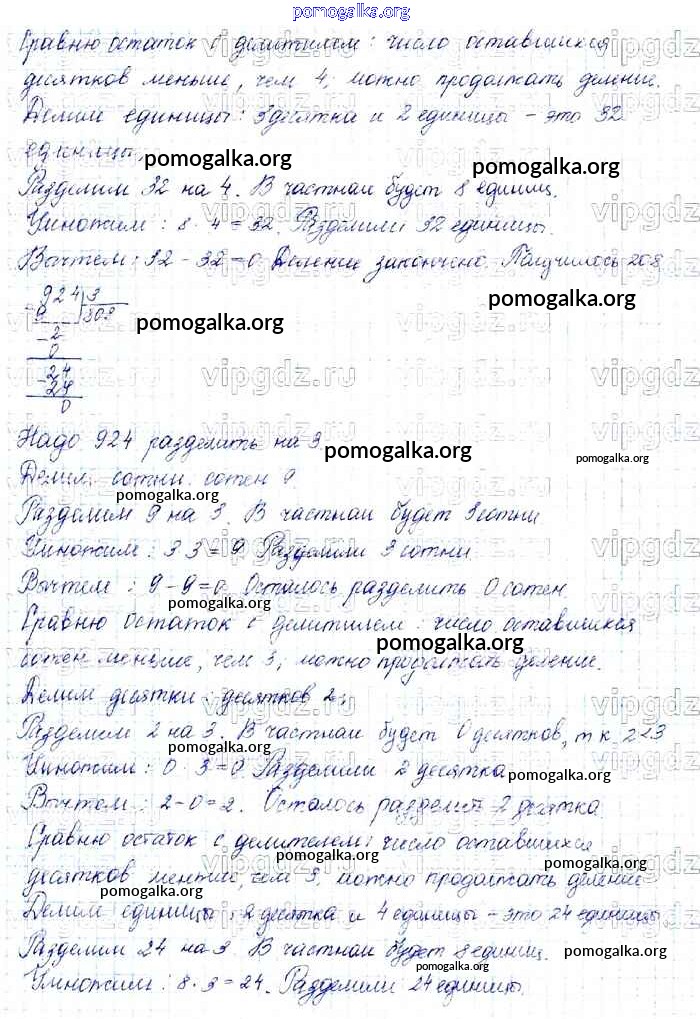 pomogalka.org
Сравню остаток с делителем: число оставшихся
десятков меньше, чем 4, можно продолжать деление.
Делим единицы: 3 десятка и 2 единицы - это 32
единицы.
pomogalka.org
pomogalka.org
Разделим 32 на 4. В частном будет 8 единиц.
Умножим: 8 · 4 = 32. Разделили 32 единицы.
Вычтем: 32 - 32 = 0 Деление закончено. Получилось 208
924 3
9 308
- 2
0
- 24
24
0
pomogalka.org
pomogalka.org
vipgdz.ru
Надо 924 разделить на 3.
pomogalka.org
Делим сотни: сотен 9
pomogalka.org
pomogalka.org
Разделим 9 на 3. В частном будет 3 сотни
Умножим: 3 3 = 9 Разделили 3 сотни.
Вычтем: 9 - 9 = 0. Осталось разделить 0 сотен
pomogalka.org
Сравню остаток с делителем: число оставшихся
pomogalka.org
сотен меньше, чем 3, можно продолжать деление.
Делим десятки: десятков 2,
Разделим 2 на 3. В частном будет 0 десятков, т к 2<3
pomogalka.org
Умножим: 0 · 3 = 0 Разделили 2 десятка
pomogalka.org
Вычтем: 2 - 0 = 2. Осталось разделить 2 десятка
Сравню остаток с делителем: число оставшихся
pomogalka.org
pomogalka.org
десятков меньше, чем 3, можно продолжать деление
pomogalka.org
Делим единицы: 2 десятка и 4 единицы - это 24 единицы
pomogalka.org
Разделим 24 на 3. В частном будет 8 единиц.
pomogalka.org
Умножим: 8 · 3 = 24. Разделили 24 единицы.
pomogalka.org